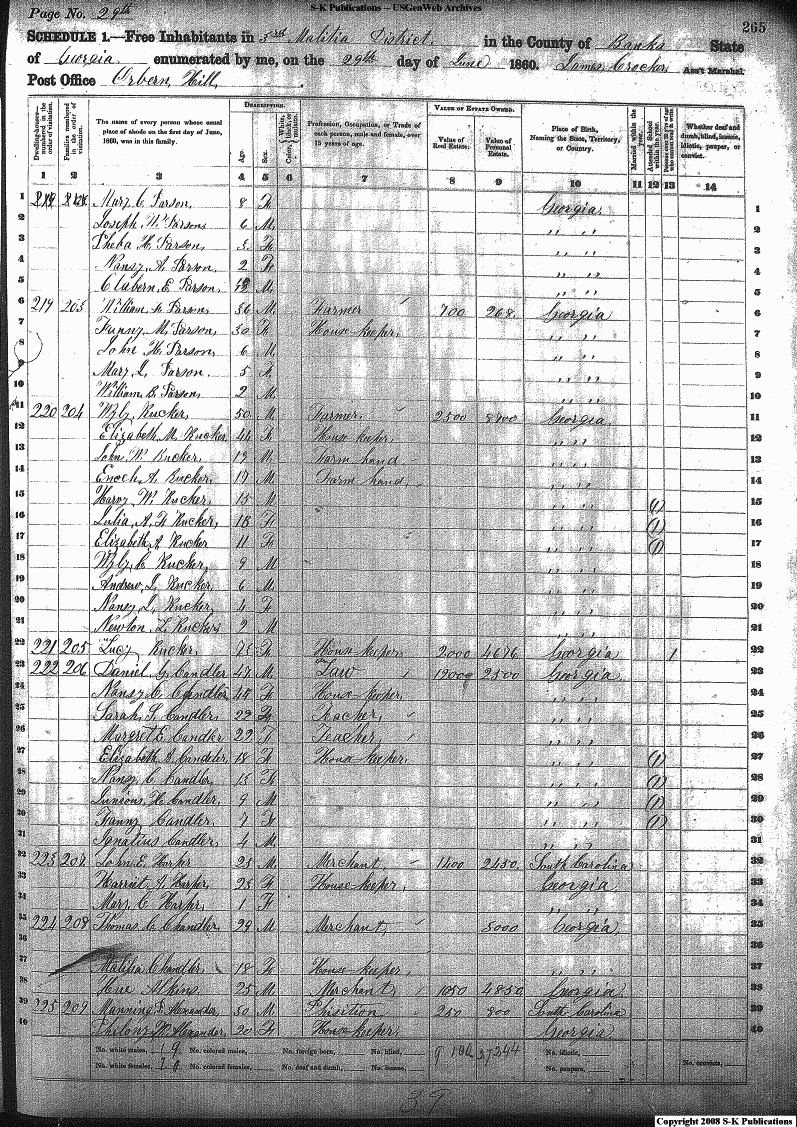 S-K Publications – USGenWeb Archives
Page No. 29th
265
SCHEDULE 1.—Free Inhabitants in 3rd Militia District, in the County of Banks State
of Georgia enumerated by me, on the 29th day of June 1860. James Crocker Ass't Marshal.
Post Office Orbern, Hill,
Dwelling-houses—numbered in the order of visitation. Families numbered in the order of visitation. The name of every person whose usual place of abode on the first day of June, 1860, was in this family. DESCRIPTION. Age. Sex. Color, White, black, or mulatto. Profession, Occupation, or Trade of each person, male and female, over 15 years of age. VALUE OF ESTATE OWNED. Value of Real Estate. Value of Personal Estate. Place of Birth, Naming the State, Territory, or Country. Married within the year. Attended School within the year. Whether deaf and dumb, blind, insane, idiotic, pauper, or convict.
1 2 3 4 5 6 7 8 9 10 11 12 13 14
1 Mary C Parson 8 F Georgia 1
2 Joseph W Parson 6 M ,, ,, 2
3 Pheba H. Parson, 3 F ,, ,, 3
4 Nansy A Parson 2 F ,, ,, 4
5 Clabern E Parson M ,, ,, 5
6 219 203 William Parson 36 M Farmer 700 268 Georgia 6
7 Fanny M. Parson 30 F House keeper, ,, ,, 7
8 John H. Parson 6 M ,, ,, 8
9 Mary L Parson 5 ,, ,, 9
10 William B Parson 2 M ,, ,, 10
11 220 204 Rucker 50 M Farmer 2500 8900 Georgia 11
12 Elizabeth M Rucker 44 F House keeper, ,, ,, 12
13 John W. Rucker, 19 M Farm hand ,, ,, 13
14 Enoch A. Rucker 17 M Farm hand, ,, ,, 14
15 W. Rucker 15 M ,, ,, (1) 15
16 Julia A. F Rucker, F ,, ,, (1) 16
17 Elizabeth A Rucker 11 F ,, ,, (1) 17
18 C Rucker, 9 M ,, ,, 18
19 Andrew J, Rucker, 6 M ,, ,, 19
20 Nansy L, Rucker, 4 F ,, ,, 20
21 Newton Z, Rucker 2 M ,, ,, 21
22 221 205 Lucy Rucker, F House keeper, 2000 4676 Georgia 1 22
23 222 206 Daniel G. Candler 47 M Law 12000 2500 Georgia 23
24 Nansy C Candler F House keeper, ,, ,, 24
25 Sarah J. Candler 22 F Teacher, ,, ,, 25
26 Margret E Candler 22 F Teacher, ,, ,, 26
27 Elizabeth A Candeler 18 F House keeper, ,, ,, (1) 27
28 Nansy C Candler 15 F ,, ,, (1) 28
29 Junious H Candler, 9 M ,, ,, (1) 29
30 Fanny Candler, 7 F ,, ,, (1) 30
31 Ignatius Candler 4 M ,, ,, 31
32 223 207 John E Harper 25 M Merchant 1400 2450 South Carolina 32
33 Harriet Harper, 25 F House keeper, Georgia 33
34 Mary C Harper, 1 F ,, ,, 34
35 224 208 Thomas C Chandler 29 M Merchant, 5000 Georgia 35
36 36
37 Matilda Chandler 18 F House keeper, ,, ,, 37
38 Atkins 25 M Merchant 1050 4850 Georgia 38
39 225 209 Manning Alexander, 50 M Phisition 250 800 South Carolina 39
40 Alexander 20 F House keeper Georgia 40
No. white males, 19 No. colored males, No. foreign born, No. blind, 37244 No. idiotic, No. convicts,
No. white females, No. colored females, No. deaf and dumb, No. insane, No. paupers,
39
Copyright 2008 S-K Publications